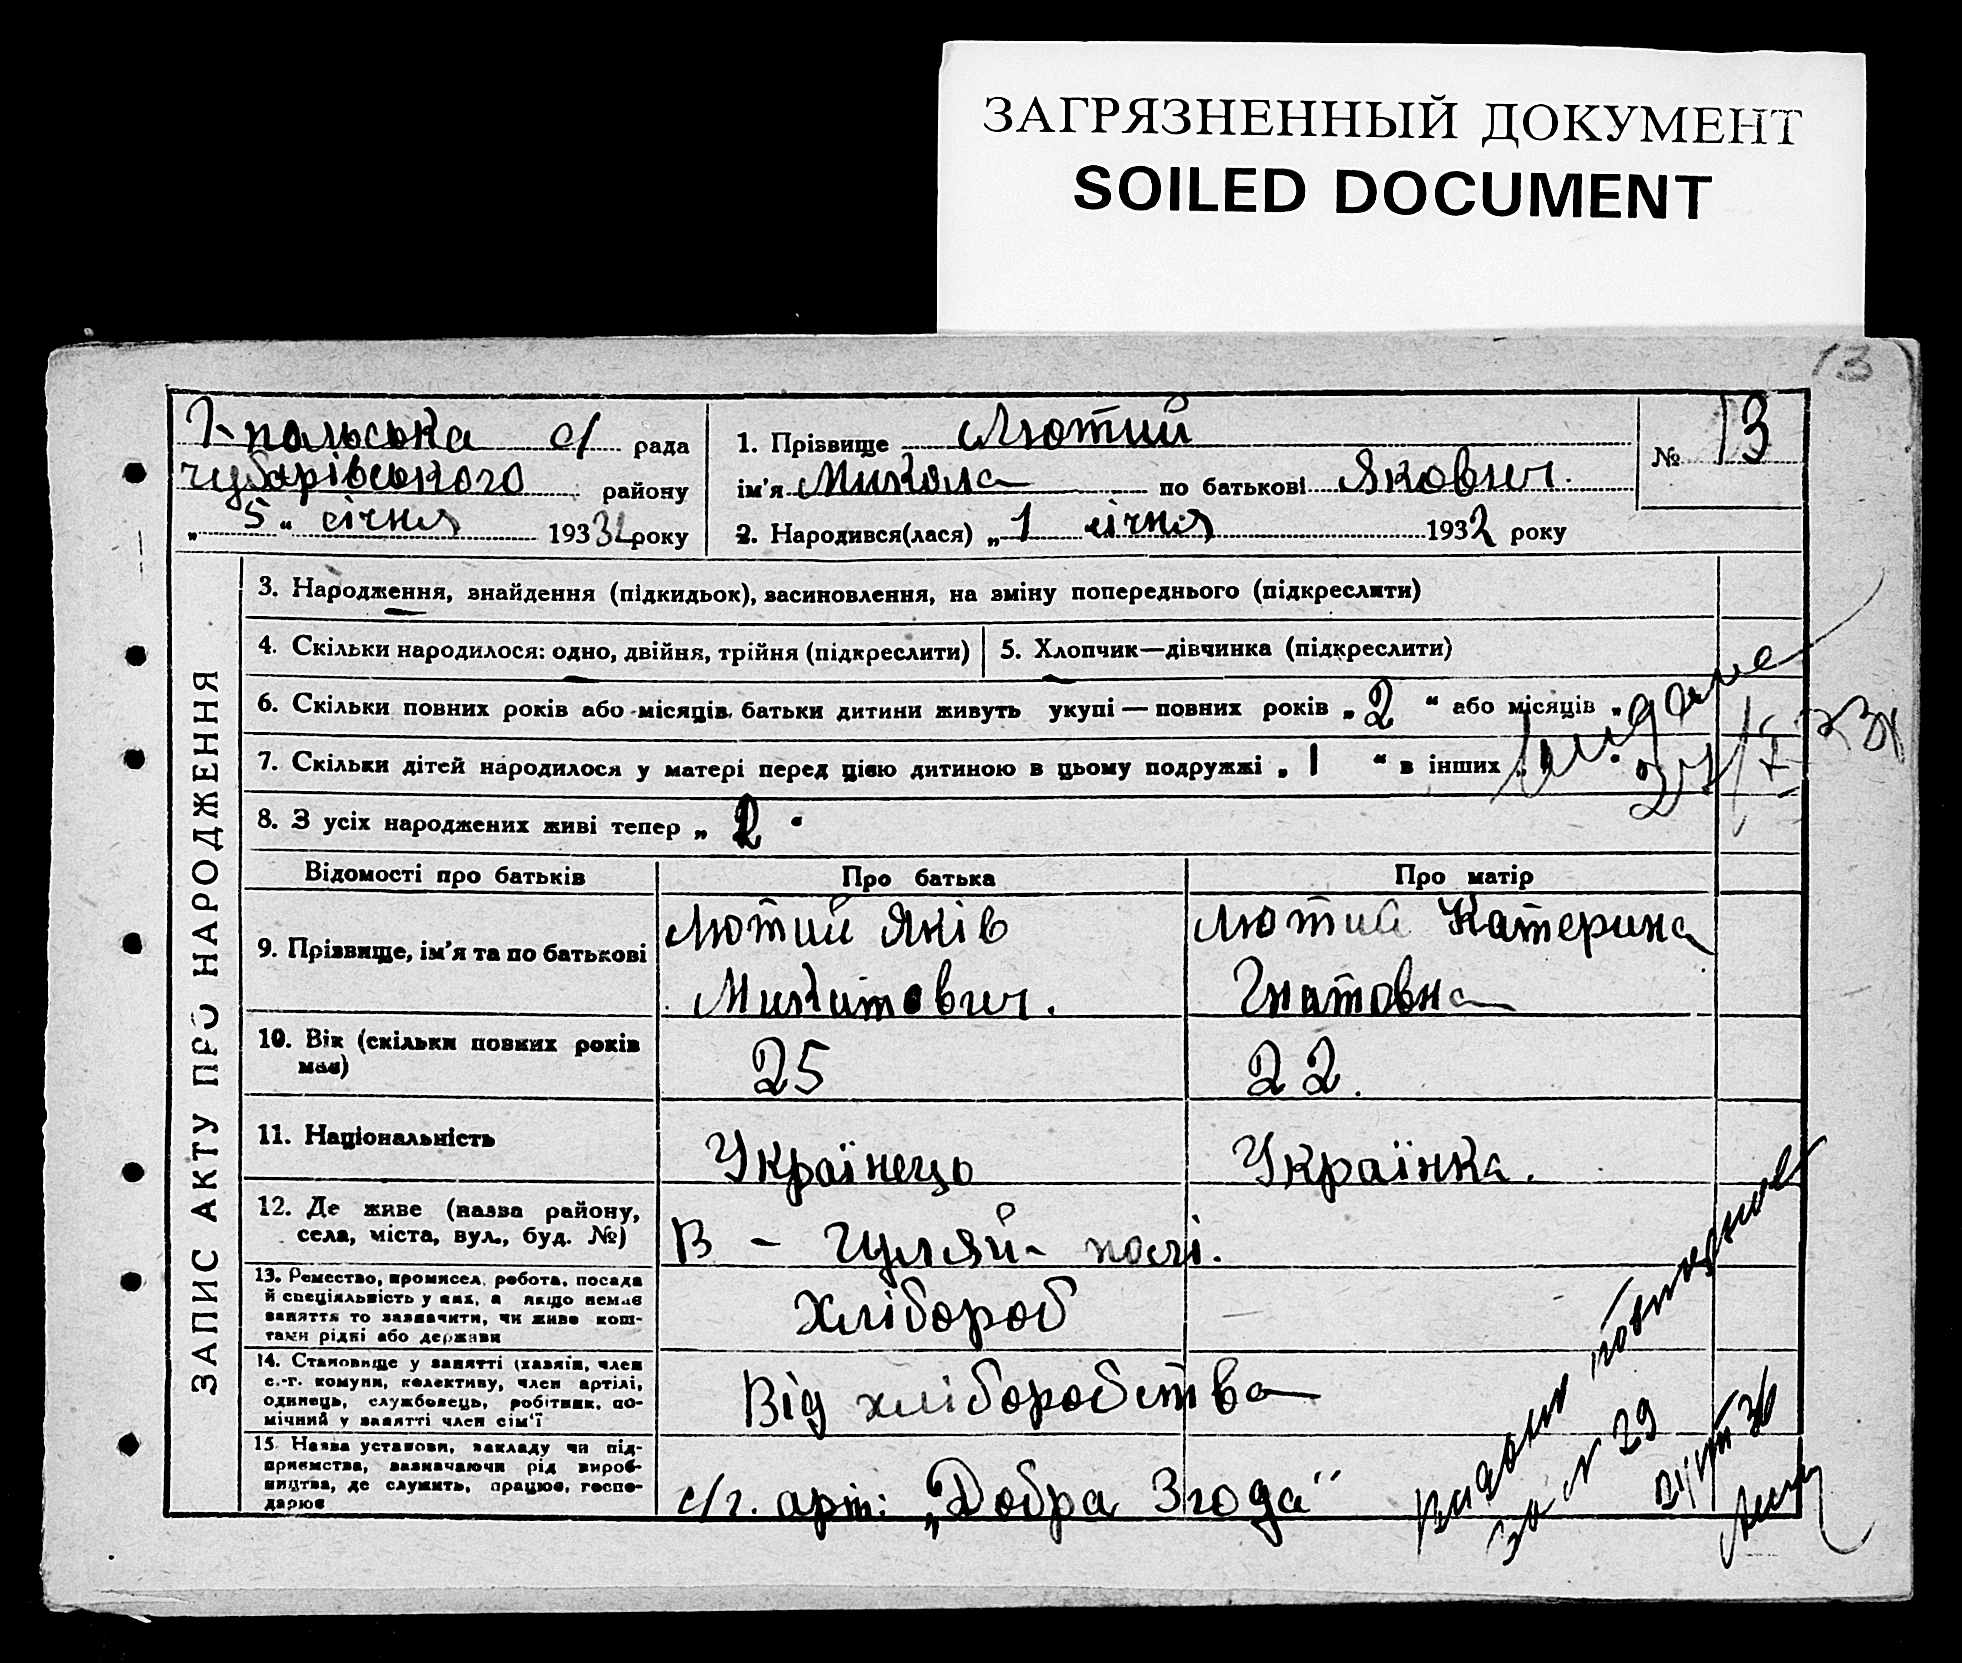 ЗАГРЯЗНЕННЫЙ ДОКУМЕНТ
SOILED DOCUMENT
13
Г-польська с/ рада
Чубарівського району
„ 5 “ січня 1932 року
1. Прізвище Лютий
ім'я Микола по батькові Якович.
№ 13
2. Народився(лася) „ 1 січня 1932 року
ЗАПИС АКТУ ПРО НАРОДЖЕННЯ
3. Народження, знайдення (підкидьок), засиновлення, на зміну попереднього (підкреслити)
4. Скільки народилося: одно, двійня, трійня (підкреслити)
5. Хлопчик—дівчинка (підкреслити)
6. Скільки повних років або місяців батьки дитини живуть укупі — повних років „ 2 “ або місяців „
7. Скільки дітей народилося у матері перед цією дитиною в цьому подружжі „ 1 “ в інших „
8. З усіх народжених живі тепер „ 2 "
Відомості про батьків
Про батька
Про матір
9. Прізвище, ім'я та по батькові
Лютий Яків
Микитович.
Лютий Катерина
Гнатовна
10. Вік (скільки повних років
має)
25
22.
11. Національність
Українець
Українка.
12. Де живе (назва району,
села, міста, вул., буд. №)
В - Гуляй- полі.
13. Ремество, промисел, робота, посада
й спеціяльність у них, а якщо немає
заняття то зазначити, чи живе кош-
тами рідні або держави
Хлібороб
14. Становище у занятті (хазяїн, член
с.-г. комуни, колективу, член артілі,
одинець, службовець, робітник, по-
мічний у занятті член сім'ї
Від хліборобства
15. Назва установи, закладу чи під-
приємства, зазначаючи рід вироб-
ництва, де служить, працює, госпо-
дарює
с/г. арт: „Добра Згода"
за № 29